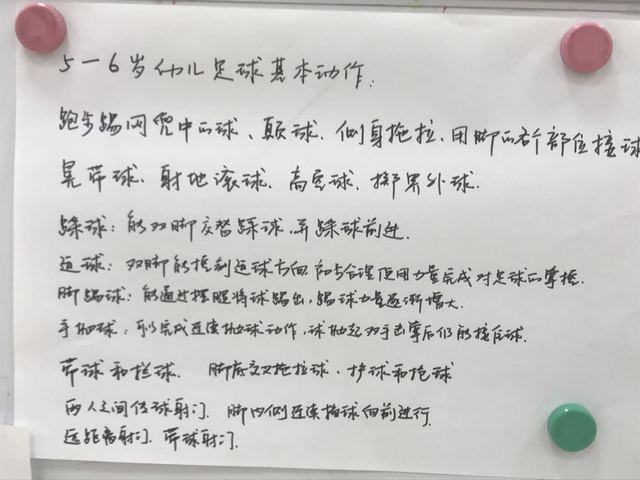 5-6岁幼儿足球基本动作:
跑步踢网兜中的球、颠球、侧身拖拉、用脚的各个部位接球
晃带球、射地滚球、高空球、掷界外球.
踩球: 能双脚交替踩球,并踩球前进.
运球: 双脚能控制运球方向 初步合理使用力量完成对足球的掌控.
脚踢球: 能通过摆腿将球踢出,踢球力量逐渐增大.
手抛球: 可以完成连续抛球动作,球抛起双手击掌后仍能接住球.
带球和拦球. 脚底交叉拖拉球、护球和抢球
两人之间传球射门. 脚内侧连续拍球向前进行.
远距离射门、带球射门.